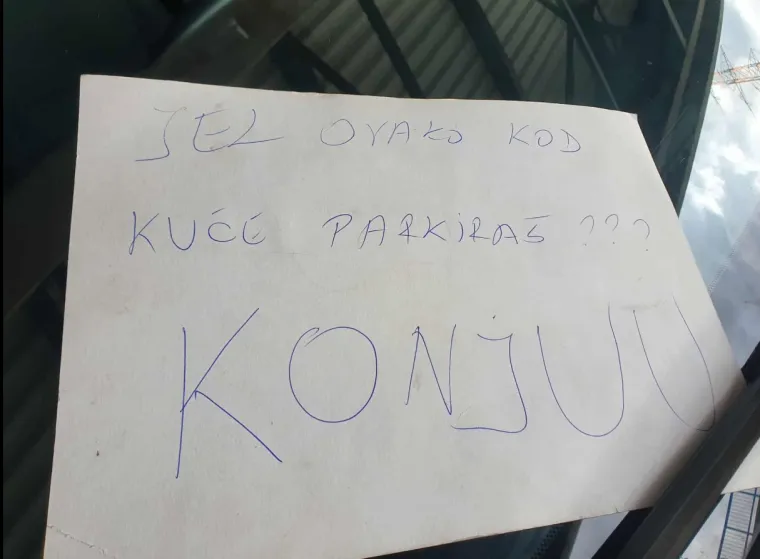 JEL OVAKO KOD
KUĆE PARKIRAŠ ???
KONJUU